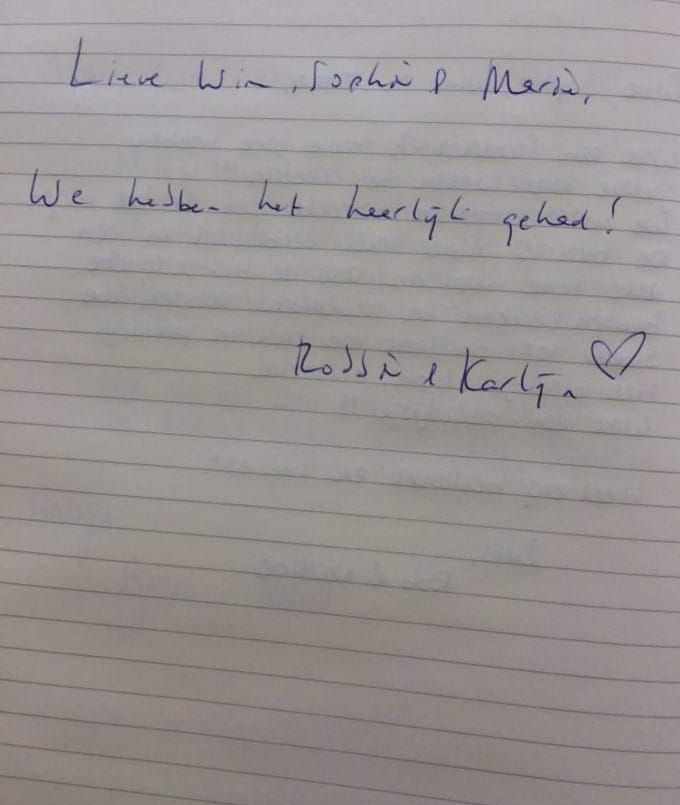 Lieve Wim, Sophie & Marie,
We hebben het heerlijk gehad!
Robbie & Karlijn